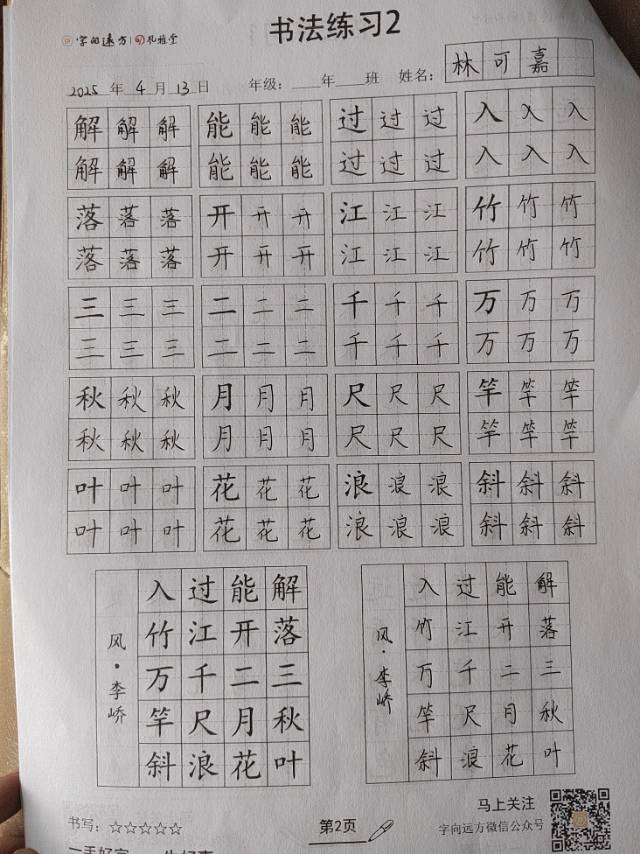 字向远方 孔雅堂
书法练习2
2025 年 4 月 13 日 年级：____年____班 姓名：林可嘉
解 解 解 能 能 能 过 过 过 入 入 入
解 解 解 能 能 能 过 过 过 入 入 入
落 落 落 开 开 开 江 江 江 竹 竹 竹
落 落 落 开 开 开 江 江 江 竹 竹 竹
三 三 三 二 二 二 千 千 千 万 万 万
三 三 三 二 二 二 千 千 千 万 万 万
秋 秋 秋 月 月 月 尺 尺 尺 竿 竿 竿
秋 秋 秋 月 月 月 尺 尺 尺 竿 竿 竿
叶 叶 叶 花 花 花 浪 浪 浪 斜 斜 斜
叶 叶 叶 花 花 花 浪 浪 浪 斜 斜 斜
解落三秋叶
能开二月花
过江千尺浪
入竹万竿斜
风·李峤
解落三秋叶
能开二月花
过江千尺浪
入竹万竿斜
风·李峤
书写：☆☆☆☆☆
第2页
马上关注
字向远方微信公众号